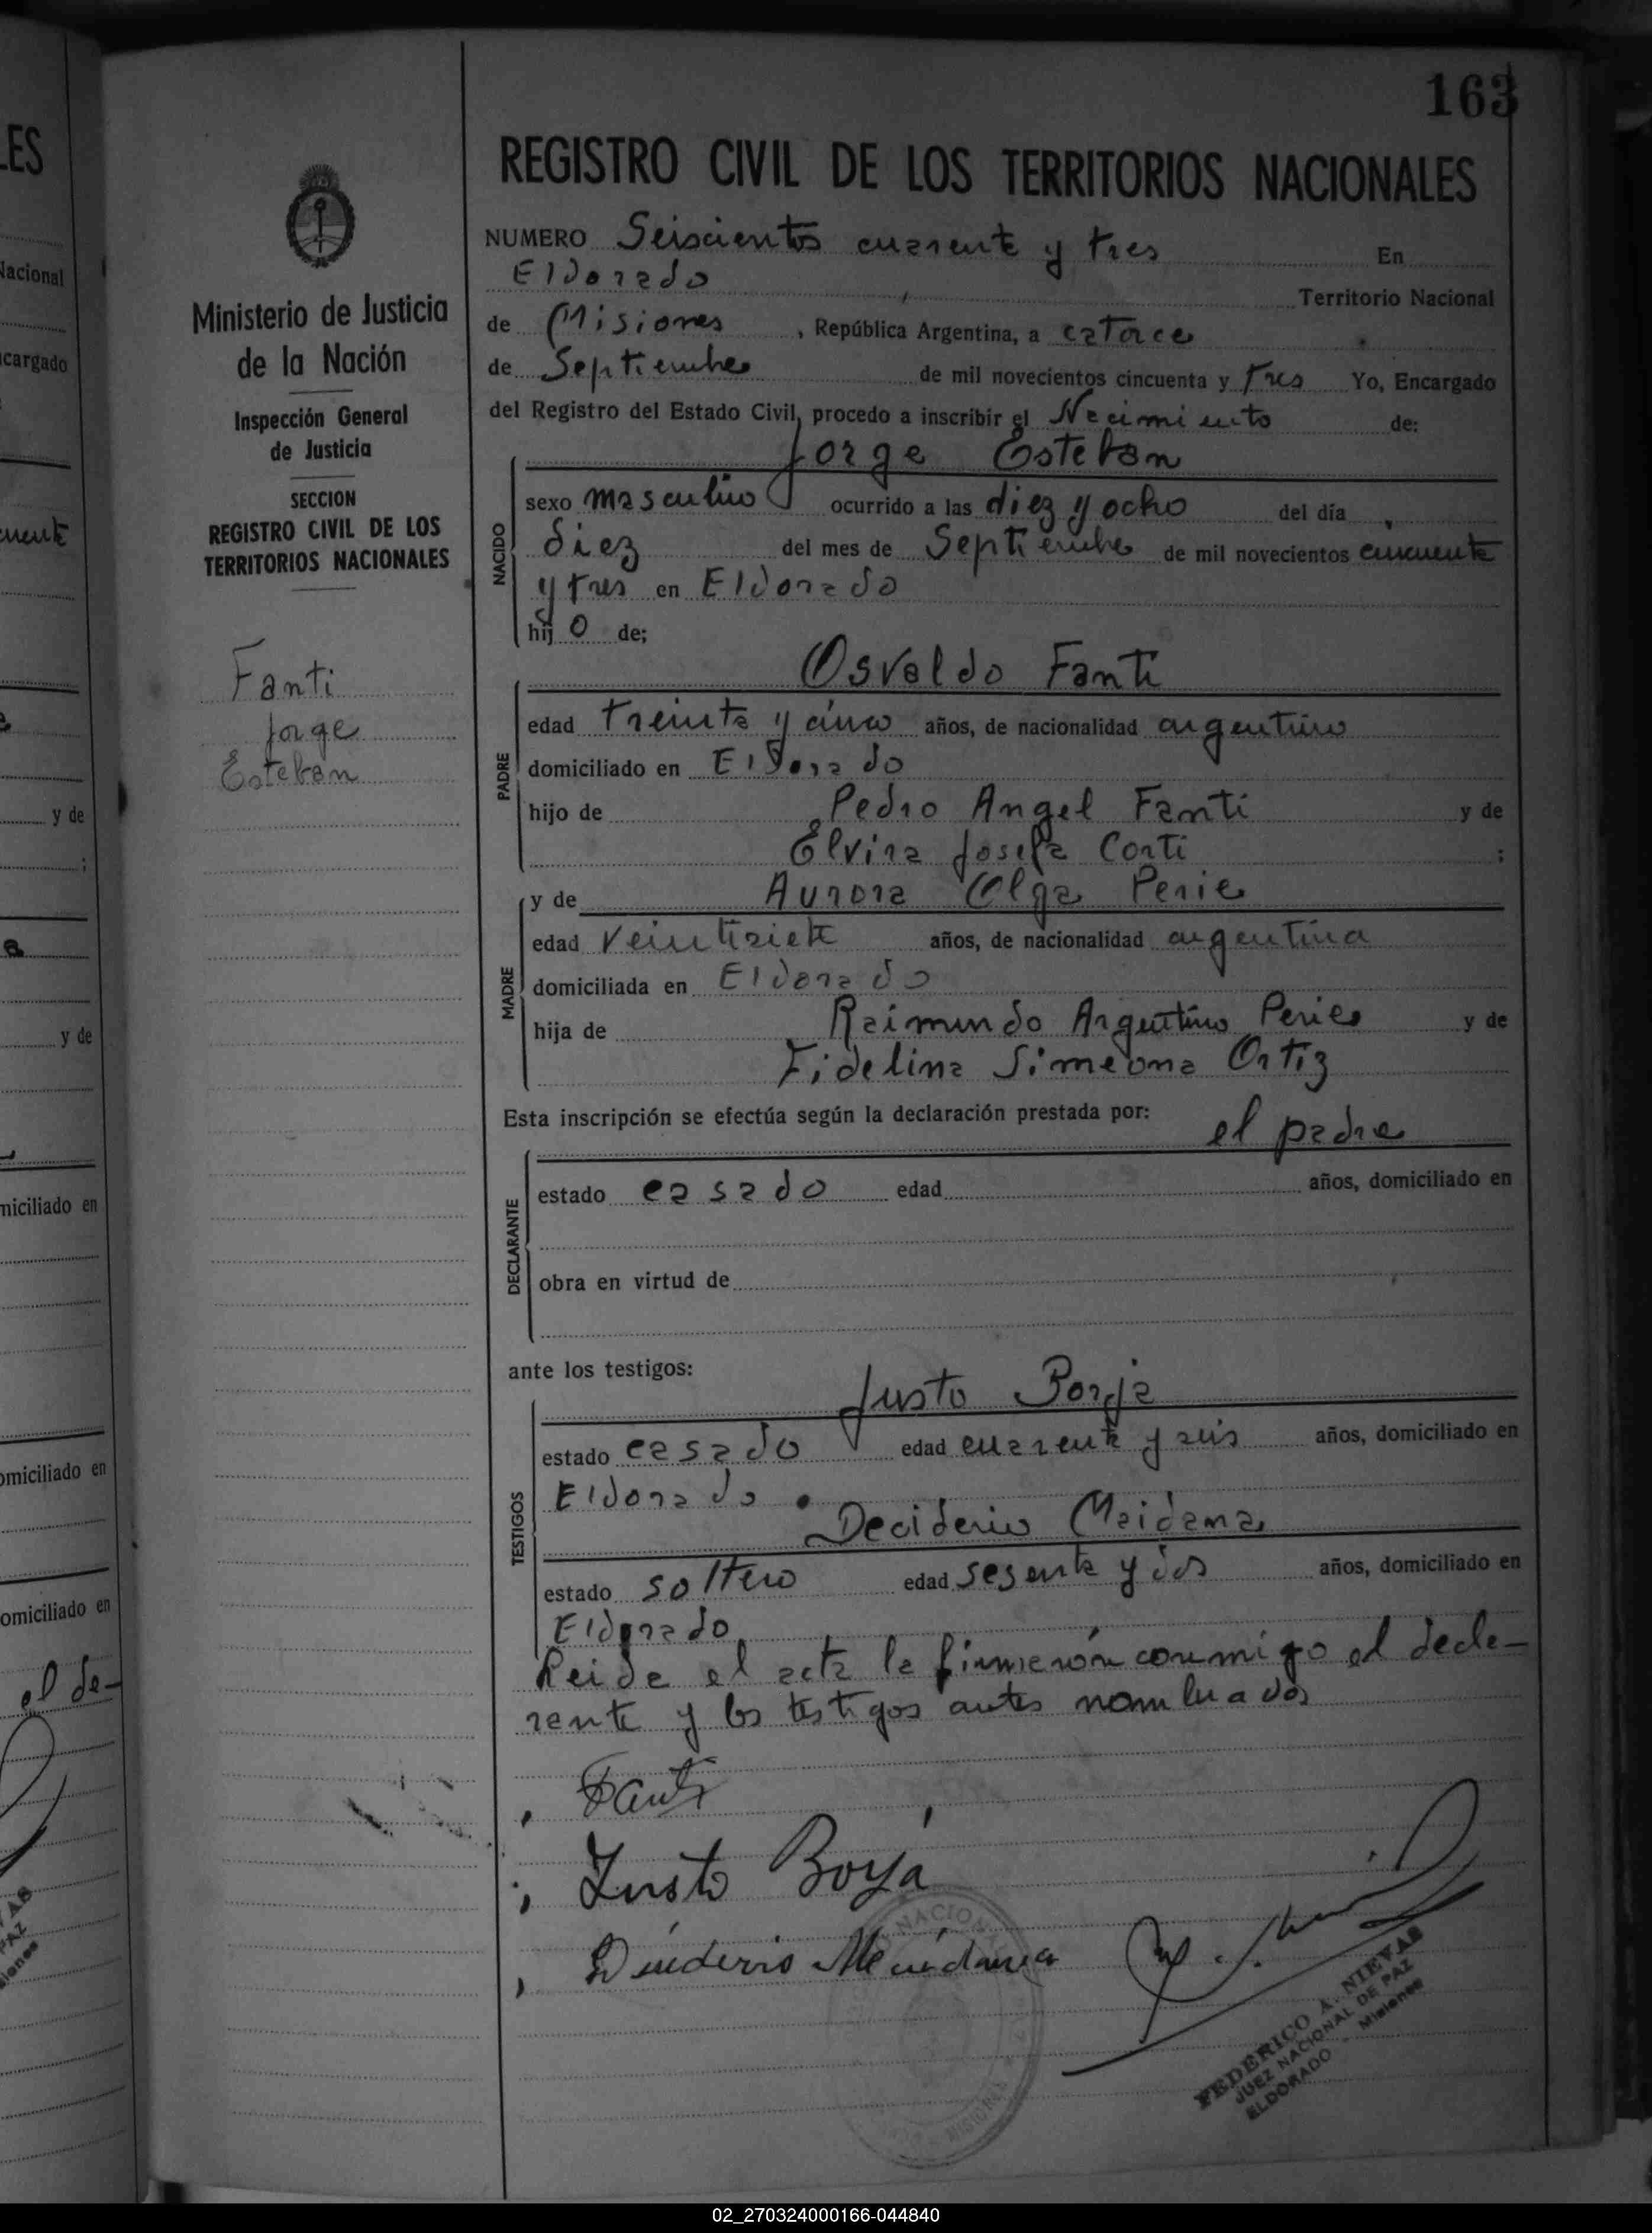 163
REGISTRO CIVIL DE LOS TERRITORIOS NACIONALES
Ministerio de Justicia
de la Nación
Inspección General
de Justicia
SECCION
REGISTRO CIVIL DE LOS
TERRITORIOS NACIONALES
Fanti
Jorge
Esteban
NUMERO Seiscientos cuarenta y tres En
Eldorado Territorio Nacional
de Misiones, República Argentina, a catorce
de Septiembre de mil novecientos cincuenta y tres Yo, Encargado
del Registro del Estado Civil, procedo a inscribir el Nacimiento de:
Jorge Esteban
NACIDO
sexo masculino ocurrido a las diez y ocho del día
diez del mes de Septiembre de mil novecientos cincuenta
y tres en Eldorado
hijo de;
Osvaldo Fanti
PADRE
edad treinta y cinco años, de nacionalidad argentino
domiciliado en Eldorado
hijo de Pedro Angel Fanti y de
Elvira Josefa Corti ;
y de Aurora Olga Perie
MADRE
edad veintisiete años, de nacionalidad argentina
domiciliada en Eldorado
hija de Raimundo Argentino Perie y de
Fidelina Simeona Ortiz
Esta inscripción se efectúa según la declaración prestada por: el padre
DECLARANTE
estado casado edad años, domiciliado en
obra en virtud de
ante los testigos:
Justo Borja
TESTIGOS
estado casado edad cuarenta y seis años, domiciliado en
Eldorado.
Deciderio Maidana
estado soltero edad sesenta y dos años, domiciliado en
Eldorado
Leida el acta la firmarón conmigo el decla-
rante y los testigos antes nombrados
Fanti
Justo Boya
FEDERICO A. NIEVAS
JUEZ NACIONAL DE PAZ
ELDORADO - Misiones
LES
Nacional
cargado
y de
;
y de
miciliado en
omiciliado en
omiciliado en
el de-
02_270324000166-044840